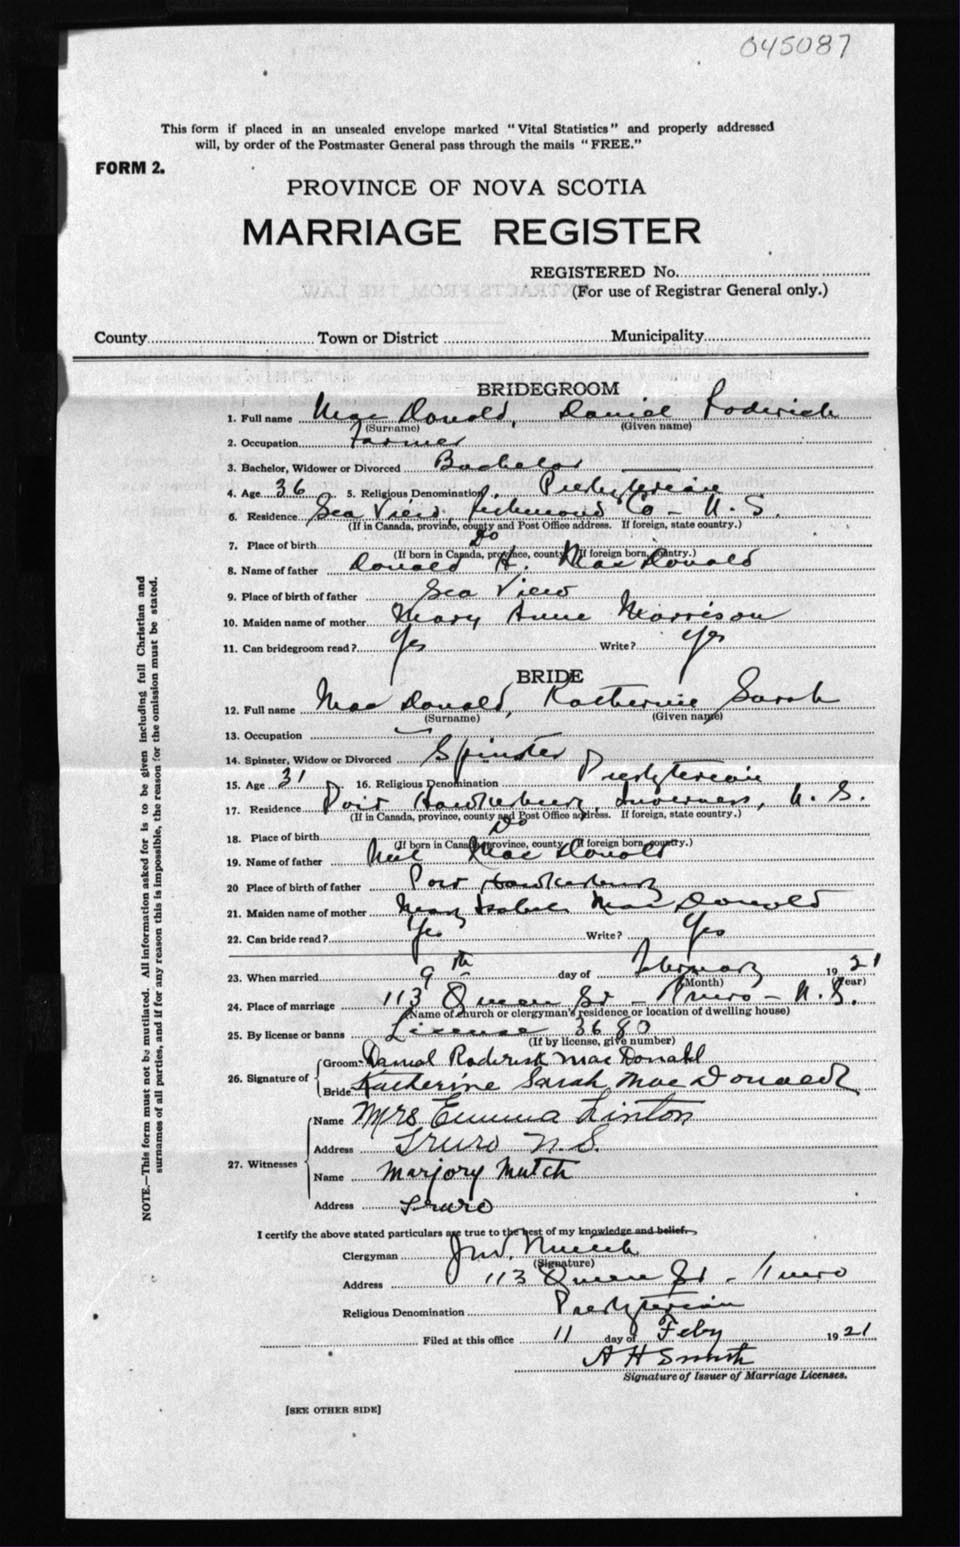 045087
This form if placed in an unsealed envelope marked "Vital Statistics" and properly addressed
will, by order of the Postmaster General pass through the mails "FREE."
FORM 2.
PROVINCE OF NOVA SCOTIA
MARRIAGE REGISTER
REGISTERED No.
(For use of Registrar General only.)
EXTRACTS FROM THE LAW
County Town or District Municipality
BRIDEGROOM
1. Full name MacDonald, Daniel Roderick
(Surname) (Given name)
2. Occupation Farmer
3. Bachelor, Widower or Divorced Bachelor
4. Age 36 5. Religious Denomination Presbyterian
6. Residence Sea View, Richmond Co - N. S.
(If in Canada, province, county and Post Office address. If foreign, state country.)
7. Place of birth Do
(If born in Canada, province, county. If foreign born, country.)
8. Name of father Donald H. MacDonald
9. Place of birth of father Sea View
10. Maiden name of mother Mary Anne Morrison
11. Can bridegroom read? Yes Write? Yes
BRIDE
12. Full name MacDonald, Katherine Sarah
(Surname) (Given name)
13. Occupation
14. Spinster, Widow or Divorced Spinster
15. Age 31 16. Religious Denomination Presbyterian
17. Residence Port Hawkesbury, Inverness, N. S.
(If in Canada, province, county and Post Office address. If foreign, state country.)
18. Place of birth Do
(If born in Canada, province, county. If foreign born, country.)
19. Name of father Neil MacDonald
20 Place of birth of father Port Hawkesbury
21. Maiden name of mother Mary Isabel MacDonald
22. Can bride read? Yes Write? Yes
23. When married 9th day of February 1921
(Month) (Year)
24. Place of marriage 113 Queen St - Truro - N. S.
(Name of church or clergyman's residence or location of dwelling house)
25. By license or banns License 3680
(If by license, give number)
26. Signature of Groom Daniel Roderick MacDonald
Bride Katherine Sarah MacDonald
27. Witnesses Name Mrs Emma Linton
Address Truro N. S.
Name Marjory Mutch
Address Truro
I certify the above stated particulars are true to the best of my knowledge and belief.
Clergyman Jno. Mutch
(Signature)
Address 113 Queen St - Truro
Religious Denomination Presbyterian
Filed at this office 11 day of Feby 1921
A H Smith
Signature of Issuer of Marriage Licenses.
[SEE OTHER SIDE]
NOTE.—This form must not be mutilated. All information asked for is to be given including full Christian and
surnames of all parties, and if for any reason this is impossible, the reason for the omission must be stated.